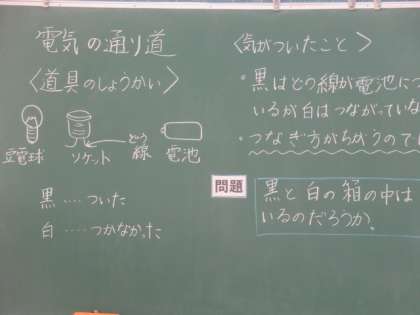 電気の通り道
〈道具のしょうかい〉
豆電球
ソケット
どう線
電池
黒‥‥ついた
白‥‥つかなかった
〈気がついたこと〉
・黒はどう線が電池につ
いるが白はつながっていな
・つなぎ方がちがうので
問題
黒と白の箱の中は
いるのだろうか。